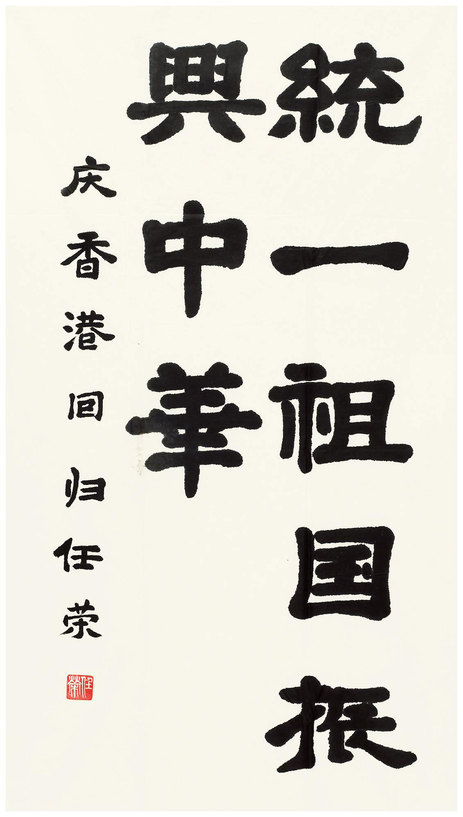 統一祖国振
興中華
庆香港回归任荣
任榮